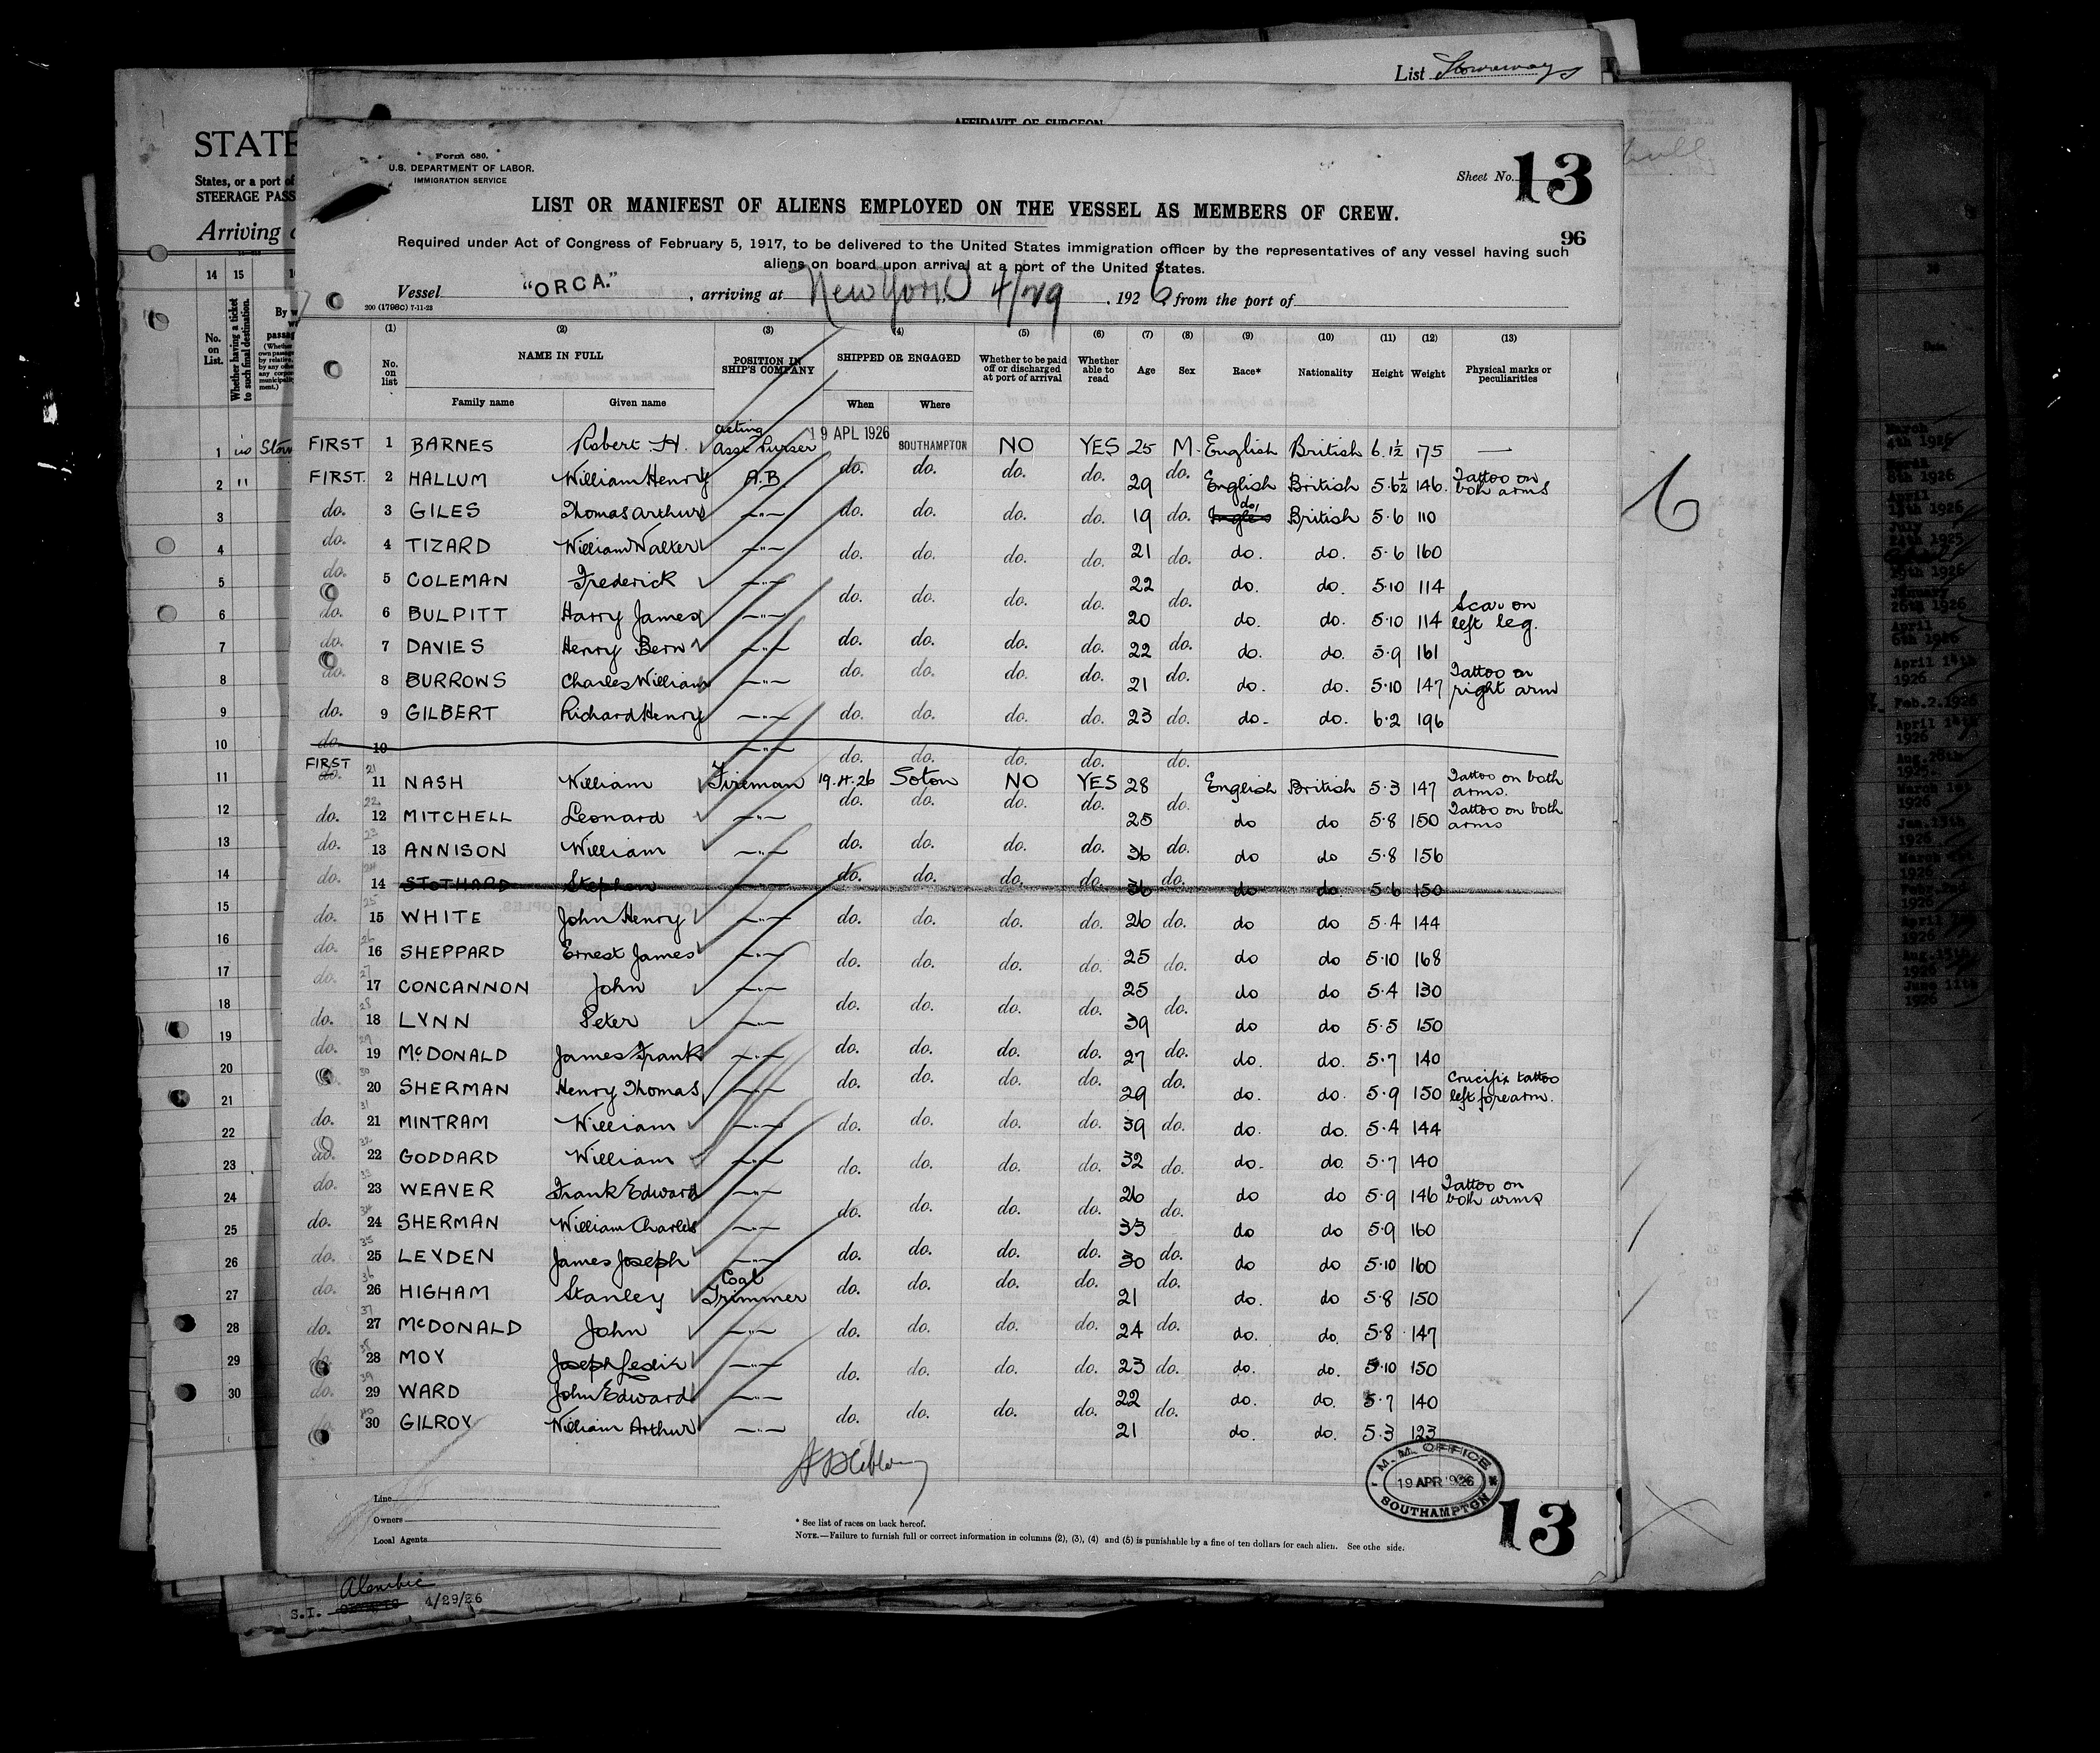 List Stowaways
AFFIDAVIT OF SURGEON
STATE
States, or a port of
STEERAGE PASS
Arriving
14 15
No. on List.
Whether having a ticket to such final destination.
Form 680.
U.S. DEPARTMENT OF LABOR.
IMMIGRATION SERVICE
Sheet No. 13
LIST OR MANIFEST OF ALIENS EMPLOYED ON THE VESSEL AS MEMBERS OF CREW.
96
Required under Act of Congress of February 5, 1917, to be delivered to the United States immigration officer by the representatives of any vessel having such
aliens on board upon arrival at a port of the United States.
Vessel "ORCA." , arriving at New York 4/29 , 1926, from the port of
200 (1798C) 7-11-23
(1) (2) (3) (4) (5) (6) (7) (8) (9) (10) (11) (12) (13)
No. on list NAME IN FULL POSITION IN SHIP'S COMPANY SHIPPED OR ENGAGED Whether to be paid off or discharged at port of arrival Whether able to read Age Sex Race* Nationality Height Weight Physical marks or peculiarities
Family name Given name When Where
FIRST 1 BARNES Robert H. acting Asst Purser 19 APL 1926 SOUTHAMPTON NO YES 25 M. English British 6.1½ 175 —
FIRST. 2 HALLUM William Henry A.B. do. do. do. do. 29 do. English British 5.6½ 146. Tattoo on both arms
do. 3 GILES Thomas Arthur —"— do. do. do. do. 19 do. do. British 5.6 110
do. 4 TIZARD William Walter —"— do. do. do. do. 21 do. do. do. 5.6 160
do. 5 COLEMAN Frederick —"— 22 do. do. 5.10 114
do. 6 BULPITT Harry James —"— do. do. do. do. 20 do. do. do. 5.10 114 Scar on left leg.
do. 7 DAVIES Henry Bern —"— do. do. do. do. 22 do. do. do. 5.9 161
do. 8 BURROWS Charles William —"— do. do. do. do. 21 do. do. do. 5.10 147 Tattoo on right arm
do. 9 GILBERT Richard Henry —"— do. do. do. do. 23 do. do. do. 6.2 196
do. 10 —"— do. do. do. do. do.
FIRST 21 11 NASH William Fireman 19.4.26 Soton NO YES 28 English British 5.3 147 Tattoo on both arms.
do. 22 12 MITCHELL Leonard —"— do. do. do. do. 25 do. do do 5.8 150 Tattoo on both arms
do. 23 13 ANNISON William —"— do. do. do. do. 36 do. do do 5.8 156
do. 24 14 STOTHARD Stephen —"— do. do. do. do. 36 do. do do. 5.6 150
do. 25 15 WHITE John Henry —"— do. do. do. do. 26 do. do do 5.4 144
do. 26 16 SHEPPARD Ernest James —"— do. do. do. do. 25 do. do do 5.10 168
do. 27 17 CONCANNON John —"— 25 do do 5.4 130
do. 28 18 LYNN Peter —"— do. do. do. do. 39 do. do do 5.5 150
do. 29 19 McDONALD James Frank —"— do. do. do. do. 27 do. do. do. 5.7 140
30 20 SHERMAN Henry Thomas —"— do. do. do. do. 29 do. do. do. 5.9 150 Crucifix tattoo left forearm.
do. 31 21 MINTRAM William —"— do. do. do. do. 39 do. do. do. 5.4 144
do. 32 22 GODDARD William —"— do. do. do. do. 32 do. do. do. 5.7 140
do. 33 23 WEAVER Frank Edward —"— 26 do do 5.9 146 Tattoo on both arms
do. 34 24 SHERMAN William Charles —"— do. do. do. do. 33 do. do do 5.9 160
do. 35 25 LEYDEN James Joseph —"— do. do. do. do. 30 do. do do 5.10 160
do. 36 26 HIGHAM Stanley Coal Trimmer do. do. do. do. 21 do. do. do 5.8 150
do. 37 27 McDONALD John —"— do. do. do. do. 24 do. do. do. 5.8 147
38 28 MOY Joseph Leslie —"— do. do. do. do. 23 do. do. do. 5.10 150
do. 39 29 WARD John Edward —"— 22 do. do. 5.7 140
do. 40 30 GILROY William Arthur —"— do. do. do. do. 21 do. do. do. 5.3 123
M. M. OFFICE
19 APR 1926
SOUTHAMPTON
13
Line
Owners
Local Agents
* See list of races on back hereof.
NOTE.—Failure to furnish full or correct information in columns (2), (3), (4) and (5) is punishable by a fine of ten dollars for each alien. See othe side.
S.I. Alembic 4/29/26
6